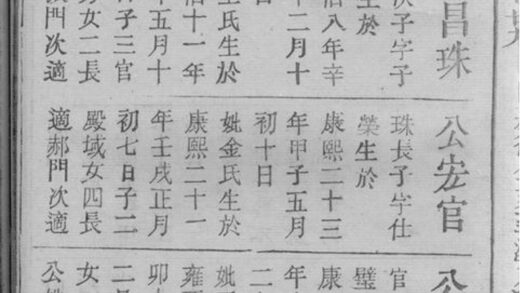 昌珠
次子字子
生於
治八年辛
年二月十
金氏生於
治十一年
年五月十
子三官
男女二長
門次適
公宏官
珠長子字仕
榮生於
康熙二十三
年甲子五月
初十日
妣金氏生於
康熙二十一
年壬戌正月
初七日子二
殿域女四長
適郝門次適
公
官
璧
康
年
二
妣
雍
卯
二
女
公